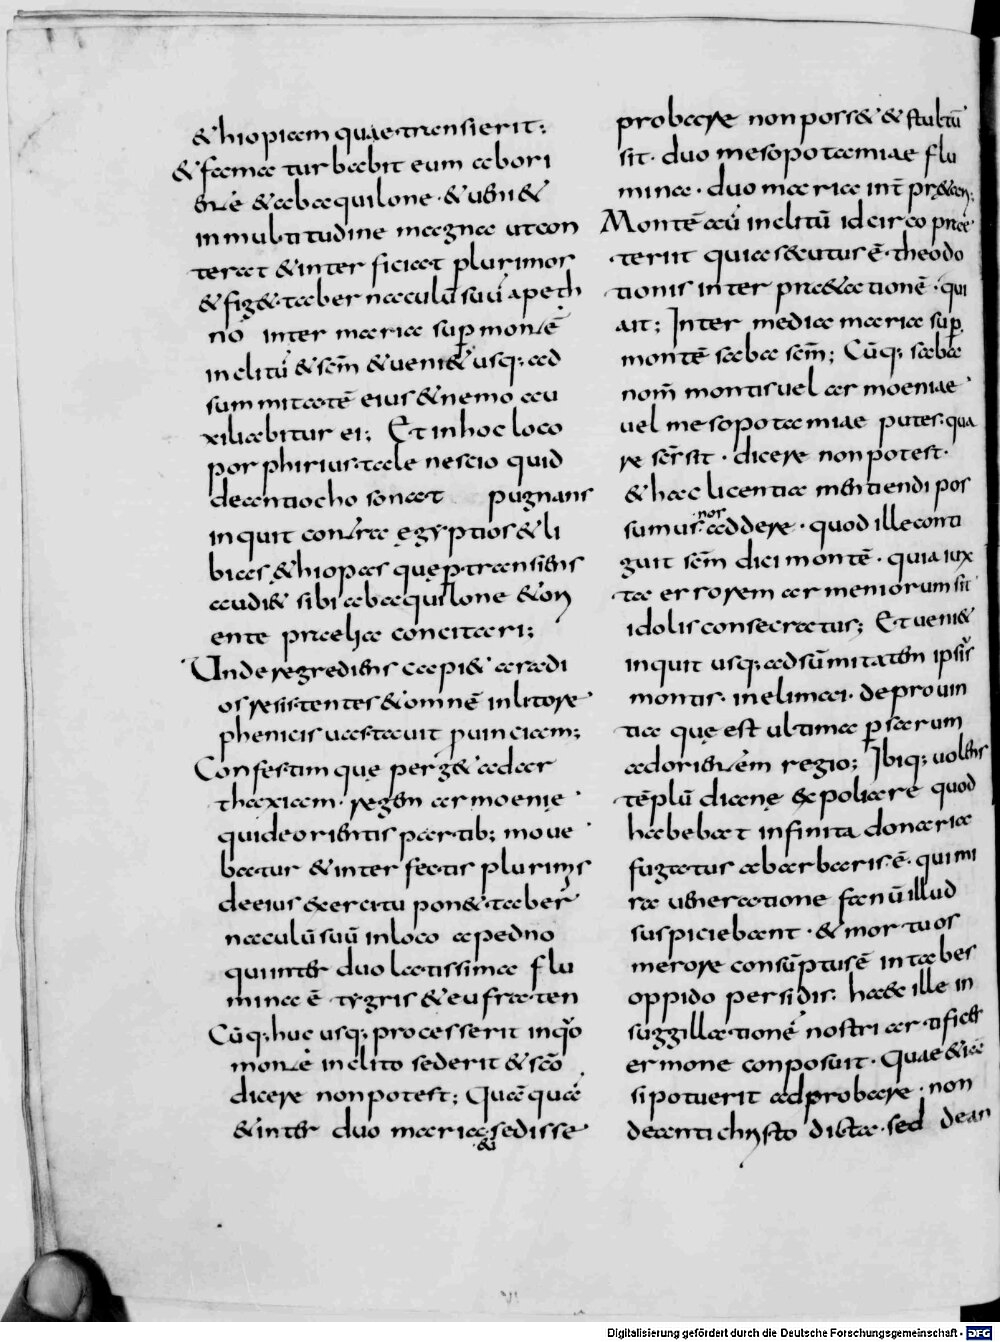 &hiopiam quae transierit;
& fama turbabit eum abori
ente & abaquilone · & ueni&
in multitudine magna utcon
terat & interficiat plurimos
& fig& tabernaculū suū apeth
nó inter maria sup montē
inclitū & scm̄ & ueni& usq; ad
summitatē eius & nemo au
xiliabitur ei; Et in hoc loco
porphirius tale nescio quid
deantiocho sonat pugnans
inquit contra ęgyptios & li
bias &hiopas quę ptransiens
audi& sibi abaquilone & ori
ente praelia concitari;
Unde regrediens capi& aradi
os resistentes & omnē in litore
phenicis uastauit puinciam;
Confestim que perg& adar
thaxiam · regem armoenię
qui deorientis partib; moue
batur & interfectis plurimis
deeius exercitu pon& taber
naculū suū in loco apedno
qui inter duo latissima flu
mina ē tygris & eufraten
Cūq; huc usq; processerit in quo
monte inclito sederit & scō
dicere non potest; Quāquā
& inter duo maria & sedisse
probare non poss& & stultū
sit · duo mesopotamiae flu
mina · duo maria int̄ pr&ari;
Montē aū inclitū idcirco prae
teriit quia secutus ē · theodo
tionis interpraetationē · qui
ait; Inter media maria sup
montē saba scm̄; Cūq; saba
nom̄ montis uel armoeniae
uel mesopotamiae putes · qua
re scs sit · dicere non potest ·
& hac licentia mentiendi pos
sumus nos addere · quod ille conti
guit scm̄ dici montē · quia iux
ta errorem armeniorum sit
idolis consecratus; Et ueni&
inquit usq; ad sūmitatem ipsius
montis · in elimai · deprouin
tia que est ultima psarum
adorientem regio; Ibiq; uolens
tēplū dianę expoliare quod
habebat infinita donaria
fugatus abarbaris ē · qui mi
ra ueneratione fanū illud
suspiciebant · & mortuos
merore consūptus ē in tabes
oppido persidis; haec ille in
suggillationē nostri artificios
ermone conposuit · Quae &iā
si potuerit adprobare · non
deantichristo dicta · sed dean
VI
Digitalisierung gefördert durch die Deutsche Forschungsgemeinschaft - DFG